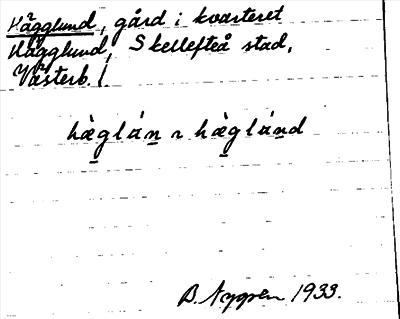 Hägglund, gård i kvarteret
Hägglund, Skellefteå stad,
Västerb. l.
hæ̀glán̲ ~ hæ̀glán̲d
B. Nygren 1933.